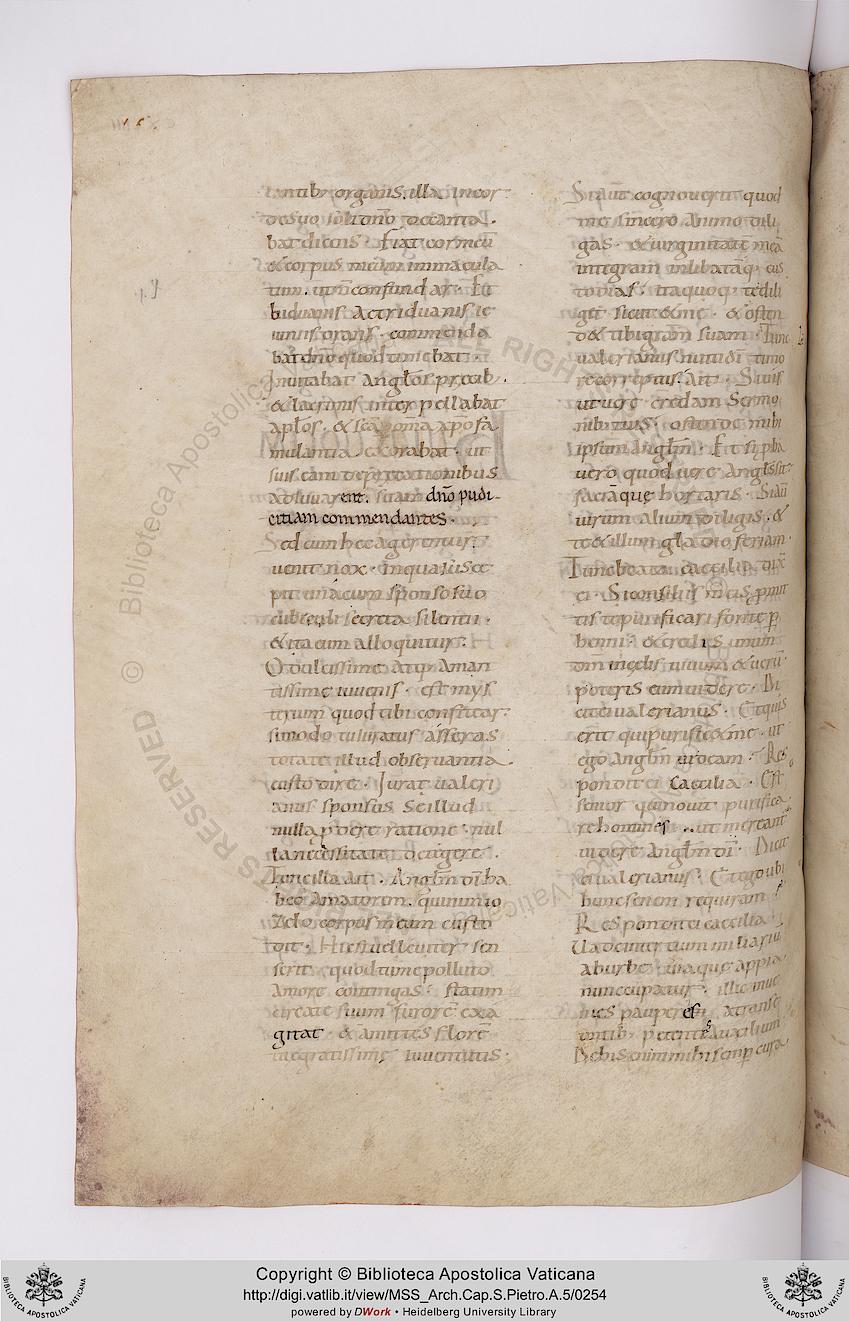 tantibus organis. illa in cor
de suo soli dño decanta
bat dicens. Fiat cor meū
& corpus meum immacula
tum. ut ñ confundar. Et
biduanis Ac triduanis ie
iuniis orans. commenda
bat dño quod timebat.
Inuitabat Angłos precib.
& lacrimis inter pellabat
apłos. & scā
mulantia exorabat. ut
suis eam deprecationibus
adiuuarent. suam dño pudi
citiam commendantes.
Sed cum hec agerentur
uenit nox. in qua susce
pit unacum sponso suo
cubiculi secreta silentii.
& ita eum alloquitur.
O dulcissime Atq; Aman
tissime iuuenis. est mys
terium quod tibi confitear.
si modo tu iuratus asseras
tota te illud obseruantia
custodire. Iurat ualeri
anus sponsus se illud
nulla pdere ratione. nul
la necessitate detegere.
Tunc illa Ait. Anglm dī ha
beo Amatorem. qui nimio
Zelo corpus meum custo
dit. Hic si uel leuiter sen
serit. quod tu me polluto
Amore contingas. statim
circa te suum furorē exa
gitat. & amittes florē
tuę gratissime iuuentutis.
Si aut̄ cognouerit quod
me sincero Animo dili
gas. & uirginitatē meā
integram inlibatāq; cus
todias. ita quoq; te dili
get sicut & me. & osten
det tibi gram suam. Tunc
ualerianus nutu dī timo
re correptus. Ait. Si uis
ut uere credam Sermo
nibus tuis. ostende mihi
ipsum Anglm. Et si pba
uero quod uere Angłs sit
faciā que hortaris. Si aū
uirum alium diligis. &
te & illum gladio feriam.
Tunc beata caecilia dix̄
ei. Si consiliis meis pmit
tis te purificari fonte p
henni. & credis unum
dm̄ in cęlis uiuum & uerū.
poteris eum uidere. Di
cit ei ualerianus. Et quis
erit qui purificet me. ut
ego Anglm uideam. Res
pondit ei Caecilia. Est
senior qui nouit purifica
re homines. ut mereant̄
uidere Anglm dī. Dicit
ei ualerianus. Et ego ubi
hunc senem requiram.
Respondit ei caecilia
Uade in tertium miliariū
ab urbe. uia que appia
nuncupatur. illic inue
nies pauperes a transe
untib petentes Auxilium
De his enim mihi semp cura
Copyright © Biblioteca Apostolica Vaticana
http://digi.vatlib.it/view/MSS_Arch.Cap.S.Pietro.A.5/0254
powered by DWork • Heidelberg University Library